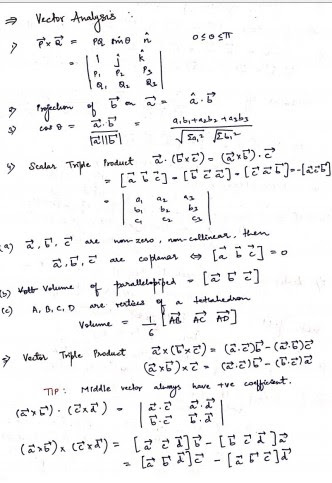 ⇒ Vector Analysis :
1) P⃗×Q⃗ = PQ sinθ n̂    0≤θ≤π
= | î ĵ k̂ |
| P₁ P₂ P₃ |
| Q₁ Q₂ Q₃ |
2) Projection of b⃗ on a⃗ = â · b⃗
3) cos θ = a⃗·b⃗ / |a⃗||b⃗| = a₁b₁+a₂b₂+a₃b₃ / √Σa₁² √Σb₁²
4) Scalar Triple Product a⃗·(b⃗×c⃗) = (a⃗×b⃗)·c⃗
= [a⃗ b⃗ c⃗] = [b⃗ c⃗ a⃗] = [c⃗ a⃗ b⃗] = -[a⃗ c⃗ b⃗]
= | a₁ a₂ a₃ |
| b₁ b₂ b₃ |
| c₁ c₂ c₃ |
(a) a⃗, b⃗, c⃗ are non-zero, non-collinear, then
a⃗, b⃗, c⃗ are coplanar ⇔ [a⃗ b⃗ c⃗] = 0
(b) Volume of parallelopiped = [a⃗ b⃗ c⃗]
(c) A, B, C, D are vertices of a tetrahedron
Volume = 1/6 [AB⃗ AC⃗ AD⃗]
5) Vector Triple Product a⃗×(b⃗×c⃗) = (a⃗·c⃗)b⃗ - (a⃗·b⃗)c⃗
(a⃗×b⃗)×c⃗ = (a⃗·c⃗)b⃗ - (b⃗·c⃗)a⃗
TIP : Middle vector always have +ve coefficient.
(a⃗×b⃗)·(c⃗×d⃗) = | a⃗·c⃗ a⃗·d⃗ |
| b⃗·c⃗ b⃗·d⃗ |
(a⃗×b⃗)×(c⃗×d⃗) = [a⃗ c⃗ d⃗]b⃗ - [b⃗ c⃗ d⃗]a⃗
= [a⃗ b⃗ d⃗]c⃗ - [a⃗ b⃗ c⃗]d⃗